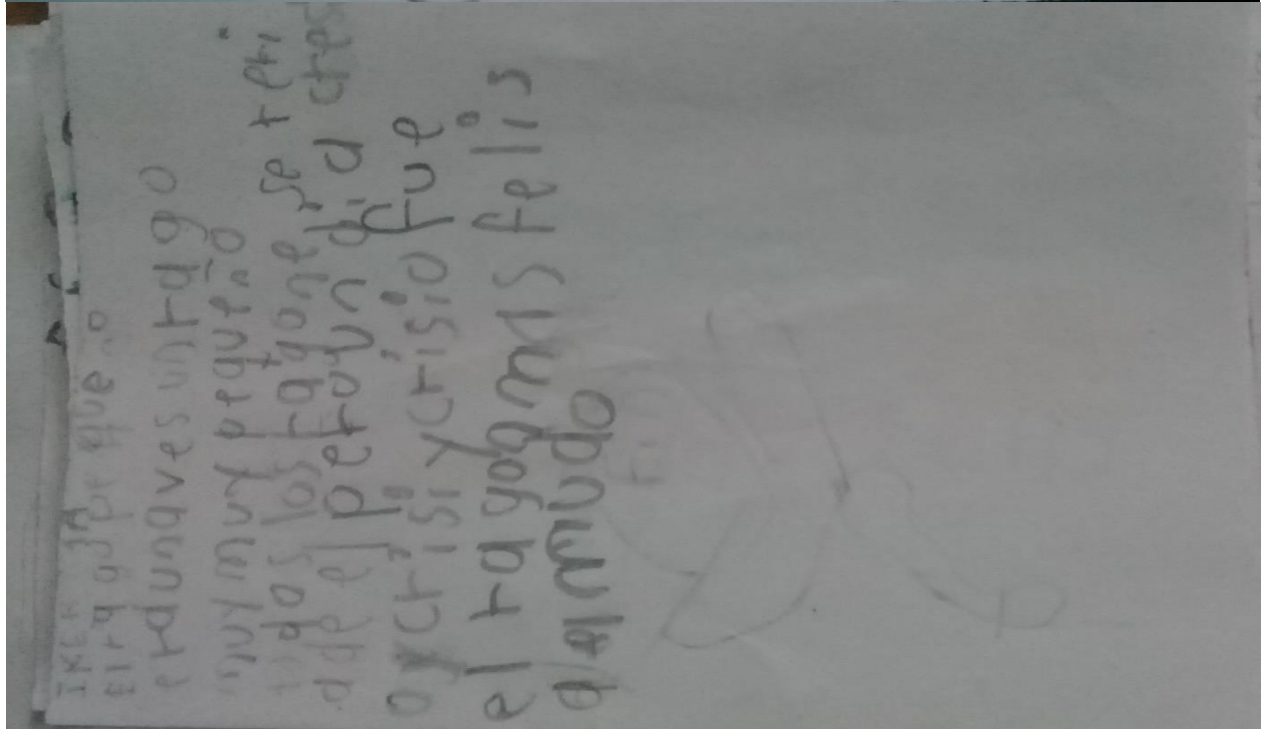 El rago peque no
eraunaves un rago
muy muy pequeño
todos los ragone se rei
ade el pero un dia cres
o y crisi y crisio fue
el felis
mudo